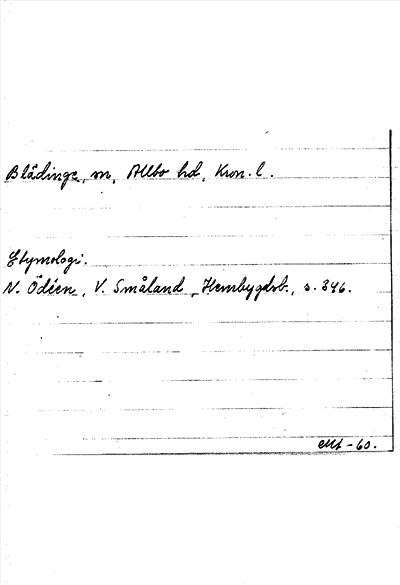 Blädinge, sn, Allbo hd, Kron. l.
Etymologi.
N. Ödéen, V. Småland, Hembygdsb., s. 346.
-60.